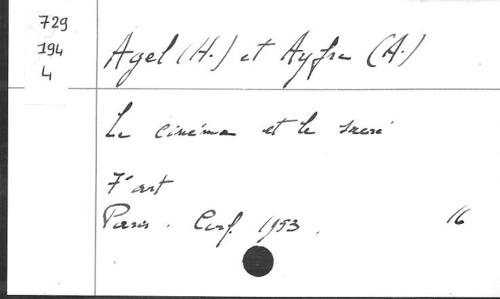 729
194
4
Agel (H.) et Ayfre (A.)
Le cinéma et le sacré
7e art
Paris. Cerf. 1953.
16